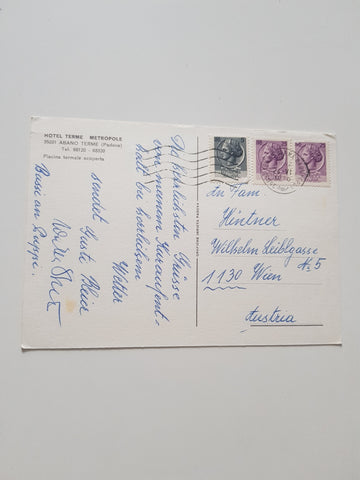 HOTEL TERME METROPOLE
35031 ABANO TERME (Padova)
Piscina termale scoperta
herzlichsten Grüsse
von meinem Kuraufent-
halt bei herrlichem
Wetter
sendet
Bussi an Puppi.
An Fam
Hintner
Wilhelm Leiblgasse
N. 5
1130 Wien
Austria